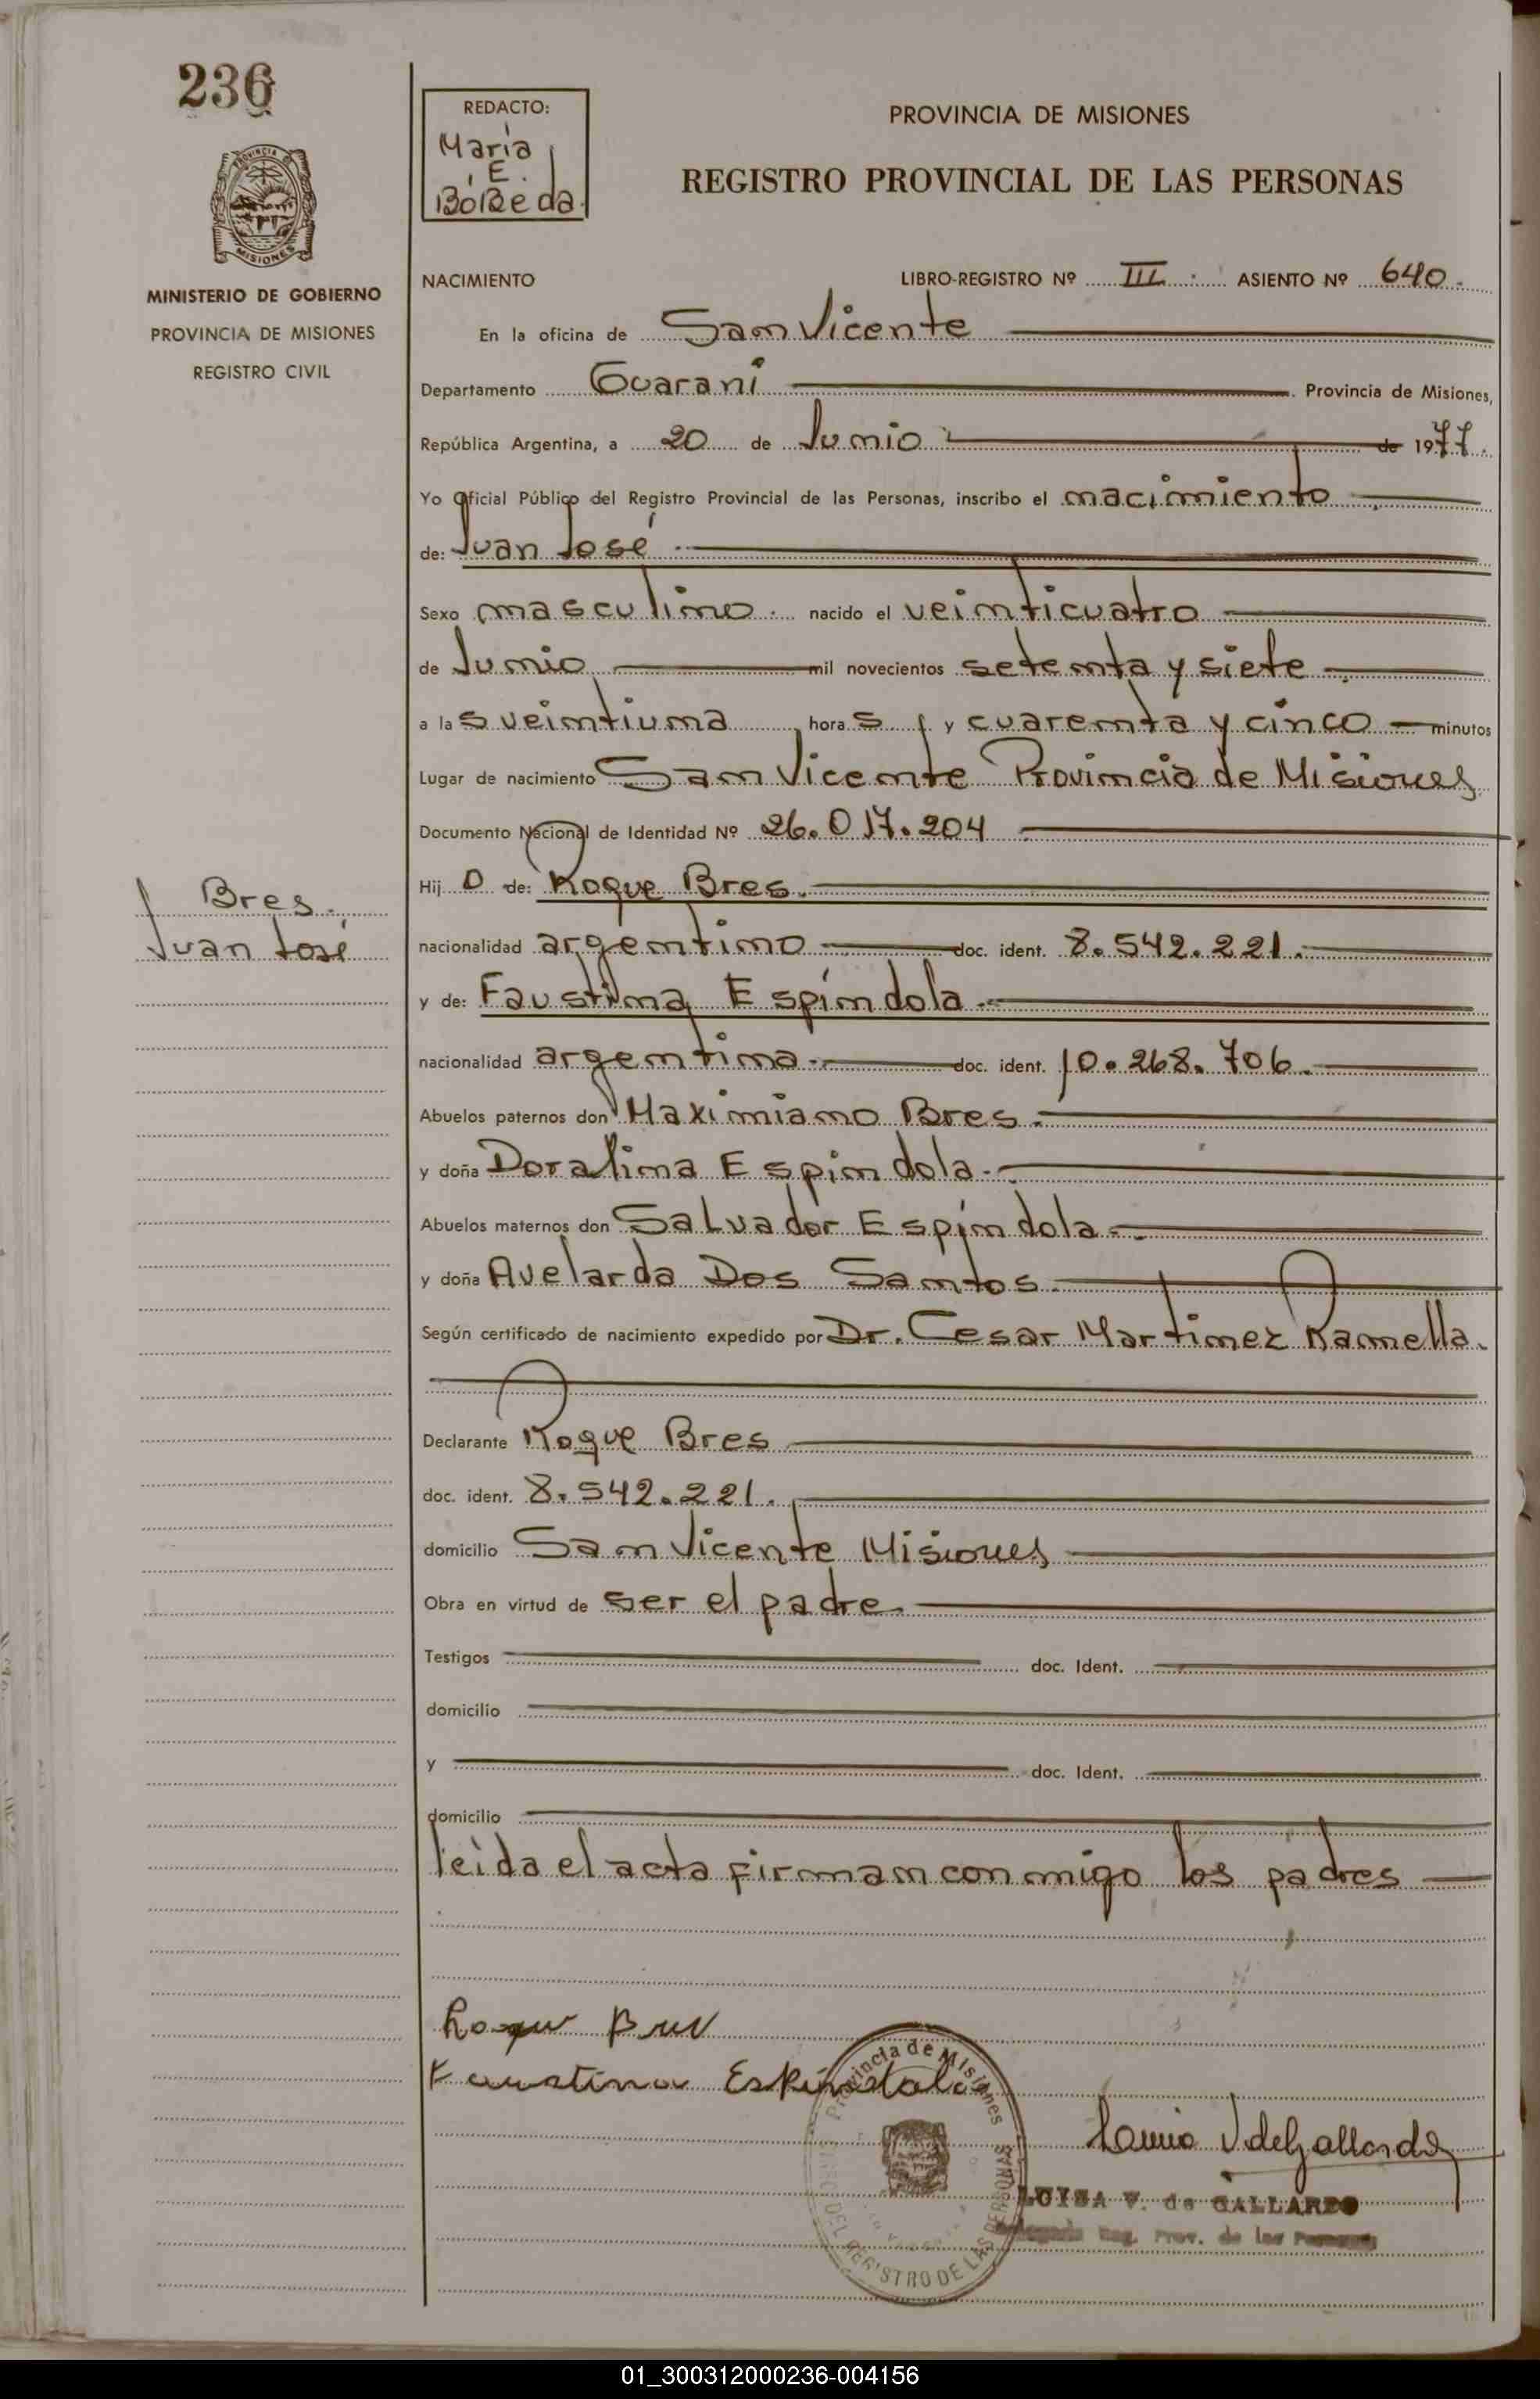 236
REDACTO:
María
E.
Bóbeda.
PROVINCIA DE MISIONES
REGISTRO PROVINCIAL DE LAS PERSONAS
PROVINCIA DE
MISIONES
MINISTERIO DE GOBIERNO
PROVINCIA DE MISIONES
REGISTRO CIVIL
NACIMIENTO LIBRO-REGISTRO Nº III. ASIENTO Nº 640.
En la oficina de San Vicente
Departamento Guaraní Provincia de Misiones,
República Argentina, a 20 de Junio de 1977.
Yo Oficial Público del Registro Provincial de las Personas, inscribo el nacimiento
de: Juan José
Sexo masculino. nacido el veinticuatro
de Junio mil novecientos setenta y siete
a las veintiuna horas y cuarenta y cinco minutos
Lugar de nacimiento San Vicente Provincia de Misiones
Documento Nacional de Identidad Nº 26.017.204
Hijo de: Roque Bres.
Bres.
Juan José
nacionalidad argentino doc. ident. 8.542.221.
y de: Faustina Espíndola.
nacionalidad argentina. doc. ident. 10.268.706.
Abuelos paternos don Maximiano Bres.
y doña Doralina Espindola.
Abuelos maternos don Salvador Espíndola.
y doña Avelarda Dos Santos.
Según certificado de nacimiento expedido por Dr. Cesar Martinez Ramella.
Declarante Roque Bres
doc. ident. 8.542.221.
domicilio San Vicente Misiones
Obra en virtud de ser el padre.
Testigos doc. Ident.
domicilio
y doc. Ident.
domicilio
leída el acta firman conmigo los padres
Roque Bres
Faustina Espindola
Provincia de Misiones
DEL REGISTRO DE LAS PERSONAS
Luisa V. de Gallardo
LUISA V. de GALLARDO
Reg. Prov. de las Personas
01_300312000236-004156